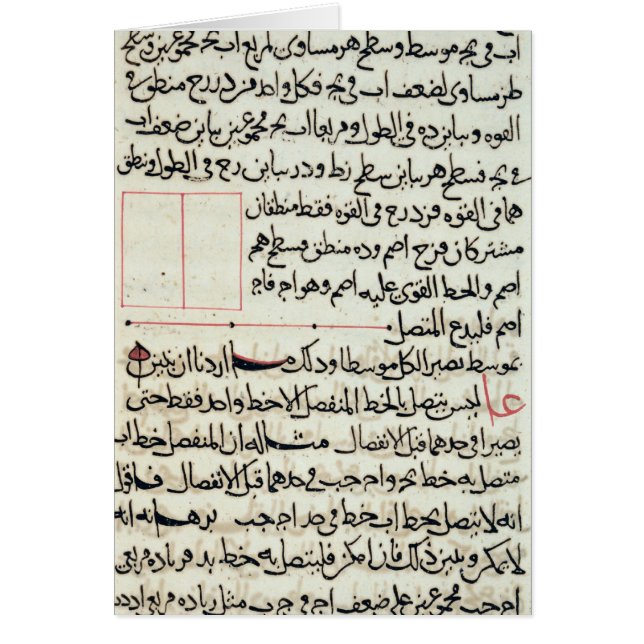 اب في بج موسط وسطح هر مساوى لمربع اب بج مجموعين وسطح
طز مساوى لضعف اب في بج فكل واحد فزد رح منطق في
القوه ويباين ده في الطول ومربعا اب بج مجموعين يباين ضعف اب
في بج فسطح هر يباين سطح زط ودر يباين رح في الطول ومنطق
هما في القوه فزد رح في القوه فقط منطقان
مشتركان فزح اصم وده منطق فسطح هح
اصم والخط القوى عليه اصم وهو اج فاج
اصم فليدع المتصل
بموسط يصير الكل موسطا وذلك ما اردنا ان نبين
عا ليس يتصل بالخط المنفصل الا خط واحد فقط حتى
يصيرا في حدهما قبل الانفصال مثاله ان المنفصل خط اب
متصل به خط بج واج جب في حدهما قبل الانفصال فاقول
انه لا يتصل بخط اب خط في حد اج جب برهانه انه
لا يمكن ونبين ذلك فان امكن فليتصل به خط بد فزياده مربعى
اج جب مجموعين على ضعف اج في جب مثل زياده مربع اد دب